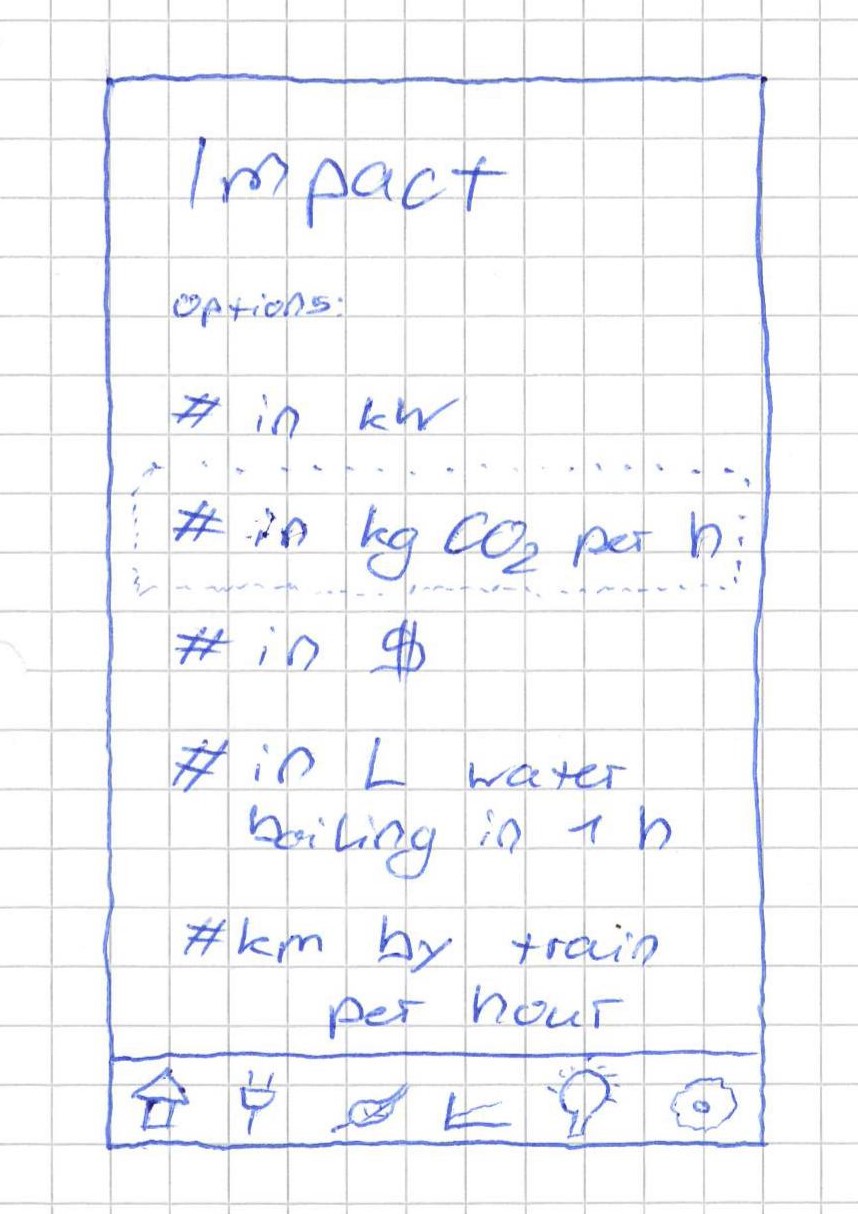 Impact
options:
# in kW
# in kg CO₂ per h
# in $
# in L water
boiling in 1 h
#km by train
per hour